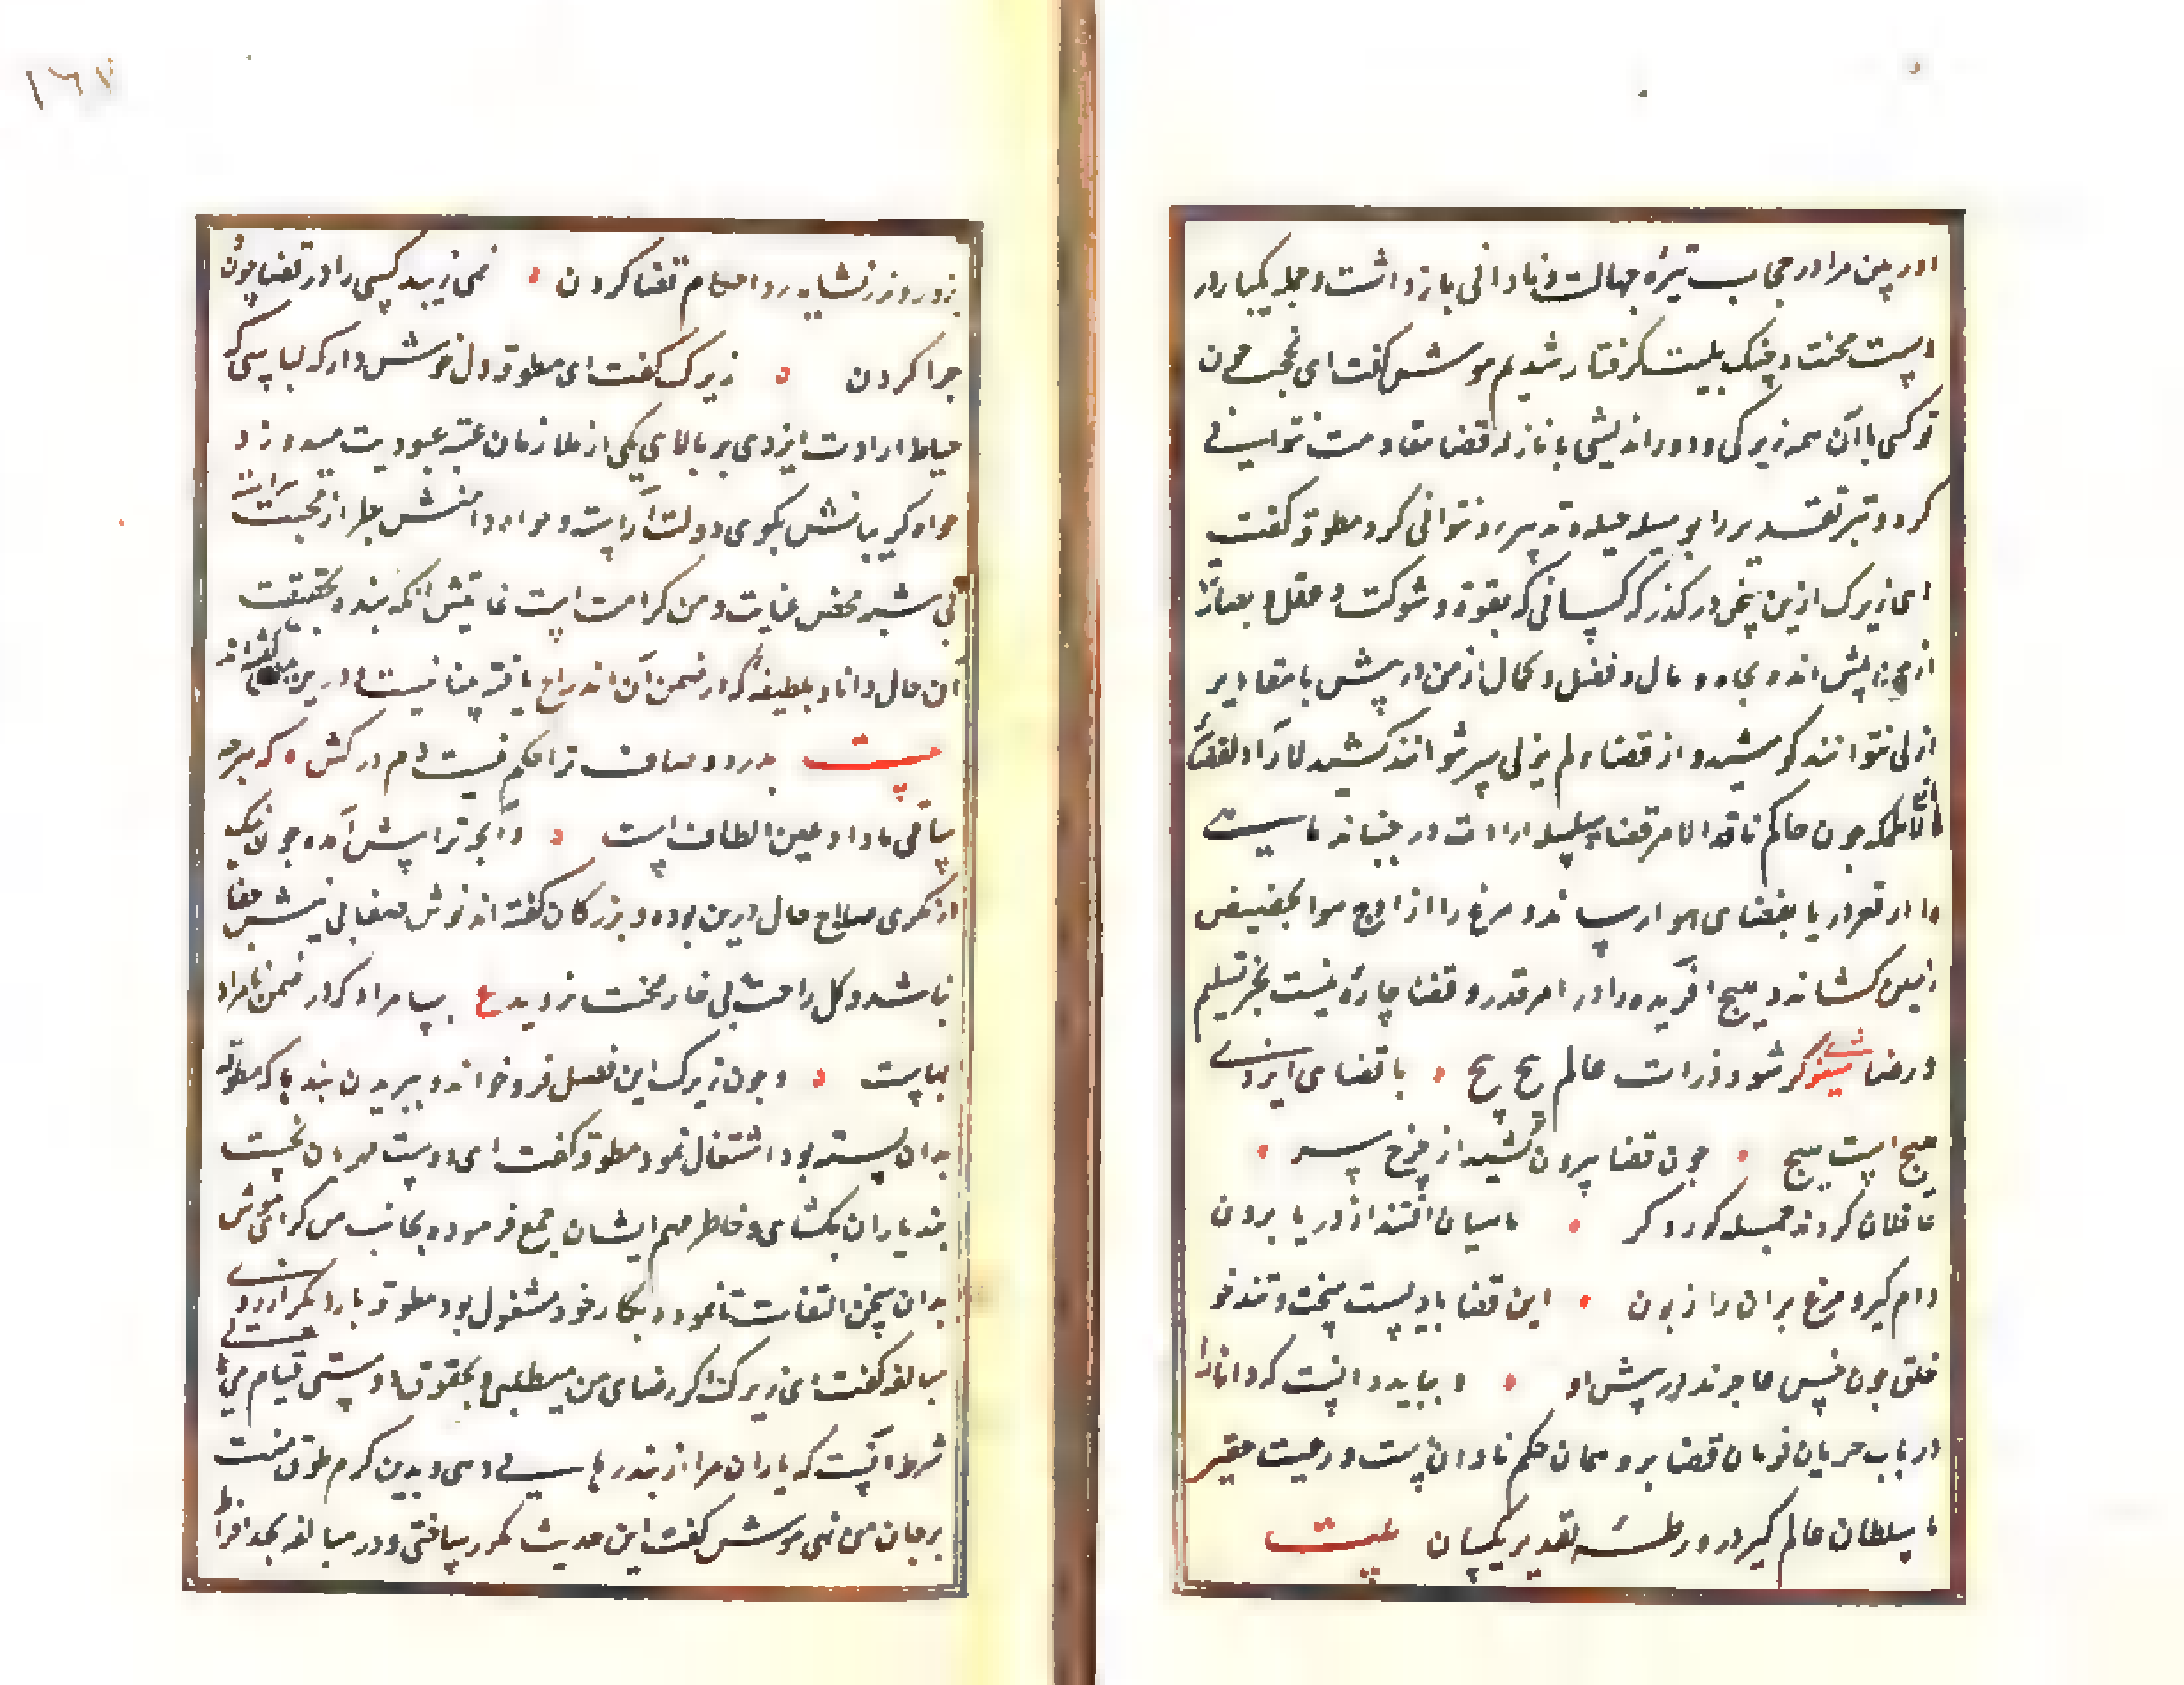 دوربین مرا در حجاب تیرهٔ جهالت و نادانی بازداشت و جمله یکبار در
دست محنت و چنک بلیت گرفتار شدیم موش گفت ای عجب چون
تو کسی با آن همه زیرکی و دوراندیشی با نازله قضا مقاومت نتوانی
کرد و تیر تقدیر را بوسیله حیله و تدبیر رد نتوانی کرد مطوقه گفت
ای زیرک ازین سخن درگذر که کسانی که بقوة و شوکت و عقل و بصارت
از من پیش اند و بجاه و مال و فضل و کمال از من در پیش با مقادیر
ازلی نتوانند کوشید و از قضاء لم یزلی سر نتوانند کشید لا راد لقضاء
الله و لا مانع لحکمه چون حاکم نافذ الامر قضا سلسله ارادت در جنباند ماهی
را از قعر دریا بفضای هوا رساند و مرغ را از اوج هوا بحضیض
زمین کشاند و هیچ آفریده را در امر قدر و قضا چارهٔ نیست بجز تسلیم
و رضا مثنوی گر شود ذرات عالم پیچ پیچ • با قضای ایزدی
هیچ است هیچ • چون قضا بیرون کشید از چرخ سر •
عاقلان کردند جمله کور و کر • ماهیان افتند از دریا برون
دام گیرد مرغ پران را زبون • این قضا بادیست سخت و تند خو
خلق چون خس عاجزند در پیش او • و بباید دانست که دانا را
در باب جریان فرمان قضا برو همان حکم نادان است و رعیت حقیر
با سلطان عالم گیر در ورطهٔ تقدیر یکسان بیت
۱٦۷
بزور و زر نشاید رد احکام قضا کردن • نمی زیبد کسی را در قضا چون و
چرا کردن • زیرک گفت ای مطوقه دل خوش دار که لباسی که
خیاط ارادت ایزدی بر بالای یکی از ملازمان عتبه عبودیت میدوزد
خواه گریبانش بکوی دولت آراست و خواه دامنش بطراز محبت
بی شبه محض عنایت و من کرامت است غایتش آنکه بنده بحقیقت
آن حال دانا و بلطیفه که در ضمن آن اندراج یافته بینا نیست و درین معنی گفته اند
بیت بدرد و صاف ترا حکم نیست دم درکش • که هرچه
ساقی ما داد عین الطاف است • و آنچه ترا پیش آمده چون نیک
در نگری صلاح حال درین بوده و بزرگان گفته اند نوش صفا بی نیش جفا
نباشد و گل راحت بی خار محنت نروید ع بسا مراد که در ضمن نامرادی
هاست • و چون زیرک این فصل فرو خواند و ببریدن بند پا که مطوقه
بدان بسته بود اشتغال نمود مطوقه گفت ای دوست مهربان نخست
بند یاران بکشای و خاطر هم ایشان جمع فرموده بجانب من گرای موش
بدان سخن التفات ننمود و بکار خود مشغول بود مطوقه بار دیگر از روی
مبالغه گفت ای زیرک اگر رضای من میطلبی و بحقوق دوستی قیام می
شرط آنست که یاران مرا از بند رهایی دهی و بدین کرم طوق منت
بر جان من نهی موش گفت این حدیث مکرر ساختی و در مبالغه بحد افراط